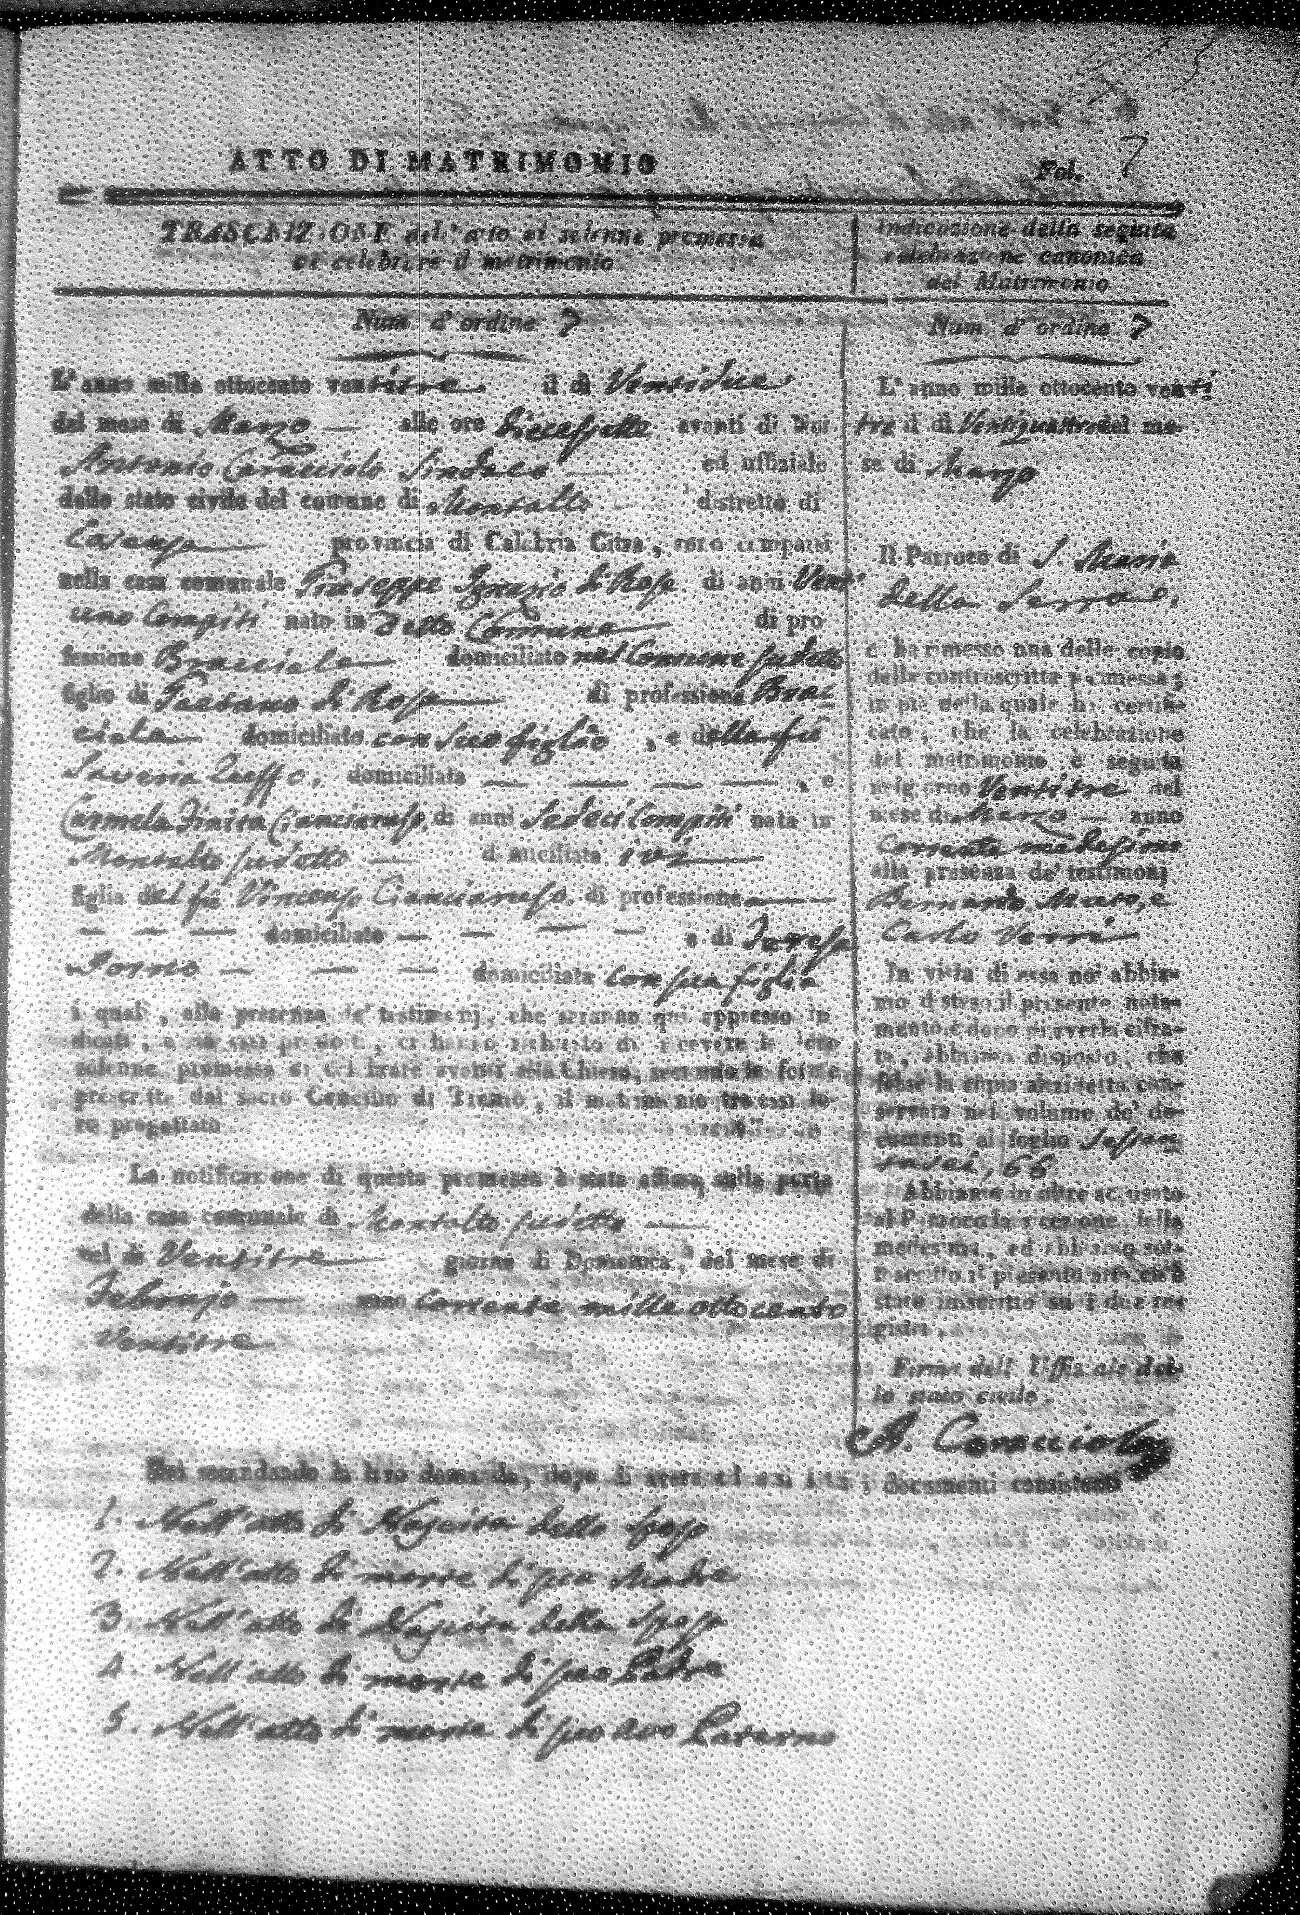 ATTO DI MATRIMONIO
Fol. 7
TRASCRIZIONE dell'atto di solenne promessa
di celebrare il matrimonio
Num. d'ordine 7
L'anno mille ottocento ventitre il di Ventidue
del mese di Marzo — alle ore Diecessette avanti di Noi
Antonio Caracciolo Sindaco — ed uffiziale
dello stato civile del comune di Montalto — distretto di
Cosenza — provincia di Calabria Citra, sono comparsi
nella casa comunale Giuseppe Ignazio di Rose di anni Vent'
uno Compiti nato in detto Comune — di pro
fessione Bracciale — domiciliato nel Comune sudetto
figlio di Gaetano di Rose — di professione Brac
ciale — domiciliato con suo figlio, e della fu
Saveria, domiciliata — — — —, e
Carmela Cianciaruso, di anni Sedeci Compiti nata in
Montalto sudetto — domiciliata ivi —
figlia del fu Vincenzo Cianciaruso, di professione —
— — — domiciliato — — — — e di Teresa
— — — domiciliata con sua figlia
i quali, alla presenza de' testimonj, che saranno qui appresso in
dicati, e da essi prodotti, ci hanno richiesto di ricevere la loro
solenne promessa di celebrare avanti alla Chiesa, secondo le forme
prescritte dal sacro Concilio di Trento, il matrimonio tra essi lo-
ro progettato
La notificazione di questa promessa è stata affissa sulla porta
della casa comunale di Montalto sudetto —
nel di Ventitre — giorno di Domenica, del mese di
Febrajo — anno corrente mille ottocento
Ventitre
Noi secondando la loro domanda, dopo di avere ad essi letti i documenti consistenti
1. Nell'atto di Nascita dello Sposo
2. Nell'atto di morte di sua Madre
3. Nell'atto di Nascita della Sposa
4. Nell'atto di morte di suo Padre
5. Nell'atto di morte di suo Avo Paterno
Indicazione della seguita
celebrazione canonica
del Matrimonio
Num. d'ordine 7
L'anno mille ottocento venti
tre il di Ventiquattro del me-
se di Marzo
Il Parroco di S. Maria
della Serra
ci ha rimesso una delle copie
della controscritta promessa;
in piè della quale ha certifi-
cato, che la celebrazione
del matrimonio è seguita
nel giorno Ventitre del
mese di Marzo — anno
Corrente medesimo
alla presenza de' testimonj
Bernardo, e
Carlo Verri —
In vista di essa noi abbia-
mo disteso il presente nota-
mento e dopo di averla cifra-
ta, abbiamo disposto, che
fosse la copia anzidetta con-
servata nel volume de' do-
cumenti al foglio Sessan
tasei, 66
Abbiamo in oltre accusato
al Parroco la ricezione della
medesima, ed abbiamo sot-
toscritto il presente atto, ch'è
stato inscritto su i due re-
gistri.
Firma dell'Uffiziale del-
lo stato civile.
A. Caracciolo